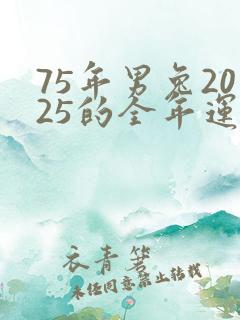 75年男兔20
25的全年運
衣青箬
未任同意禁止转载